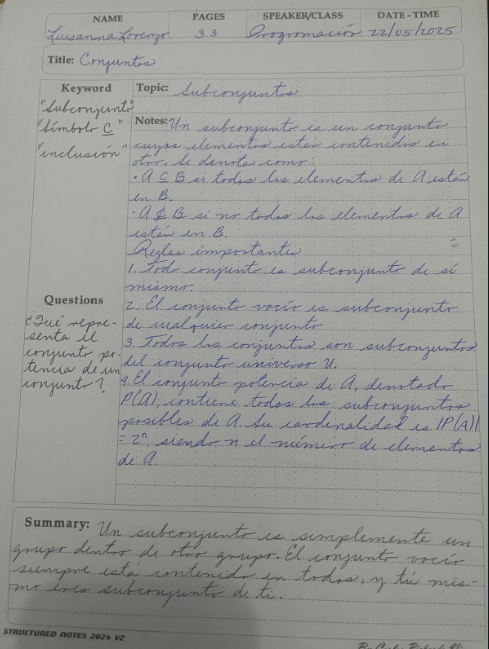 NAME PAGES SPEAKER/CLASS DATE - TIME
Luisanna Lorenzo 3.3 Programación 22/05/2025
Title: Conjuntos
Keyword
"Subconjunto"
"Símbolo ⊆"
"inclusión"
Topic: Subconjuntos
Notes: Un subconjunto es un conjunto
cuyos elementos están contenidos en
otro. Se denota como:
· A ⊆ B si todos los elementos de A están
en B.
· A ⊄ B si no todos los elementos de A
están en B.
Reglas importantes
1. Todo conjunto es subconjunto de sí
mismo.
2. El conjunto vacío es subconjunto
de cualquier conjunto
3. Todos los conjuntos son subconjuntos
del conjunto universo U.
4. El conjunto potencia de A, denotado
P(A), contiene todos los subconjuntos
posibles de A. Su cardinalidad es |P(A)|
= 2ⁿ, siendo n el número de elementos
de A.
Questions
¿Qué repre-
senta el
conjunto po-
tencia de un
conjunto?
Summary: Un subconjunto es simplemente un
grupo dentro de otro grupo. El conjunto vacío
siempre está contenido en todos, y tú mis-
mo eres subconjunto de ti.
STRUCTURED NOTES 2024 V2